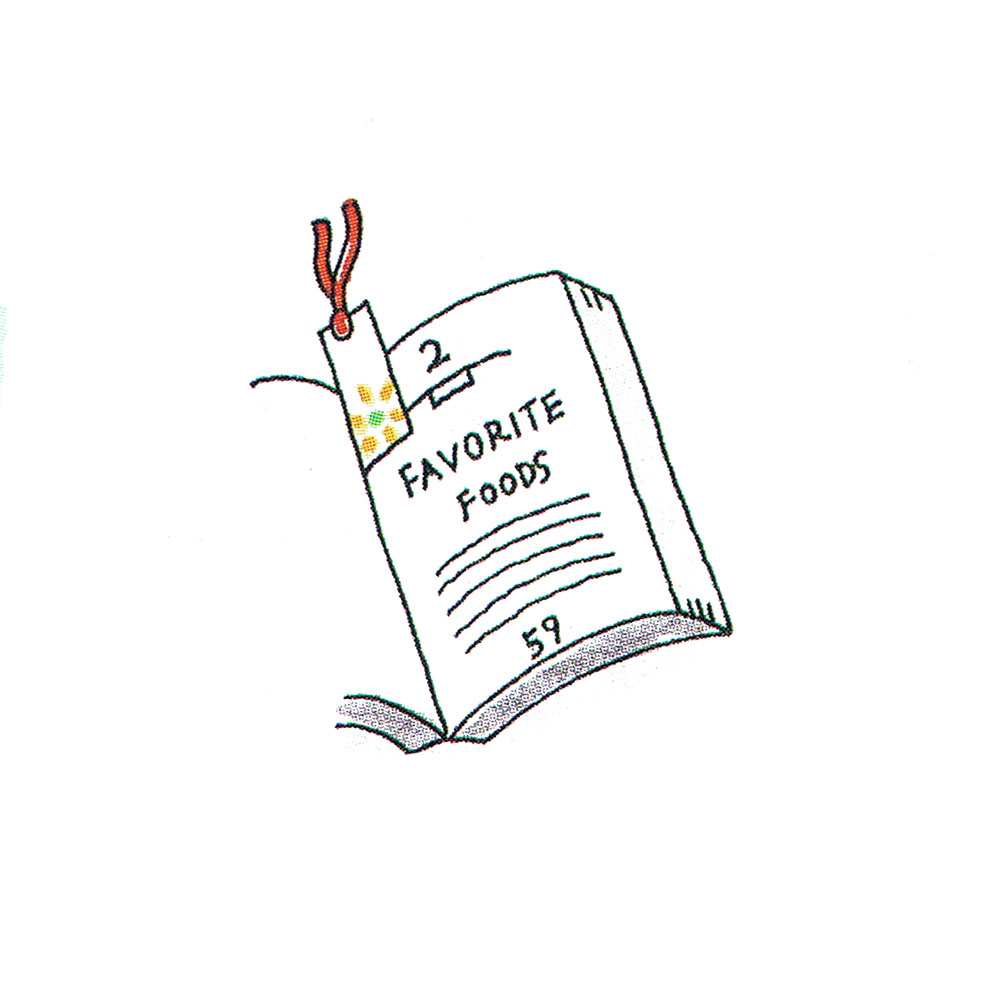 2
FAVORITE
FOODS
59